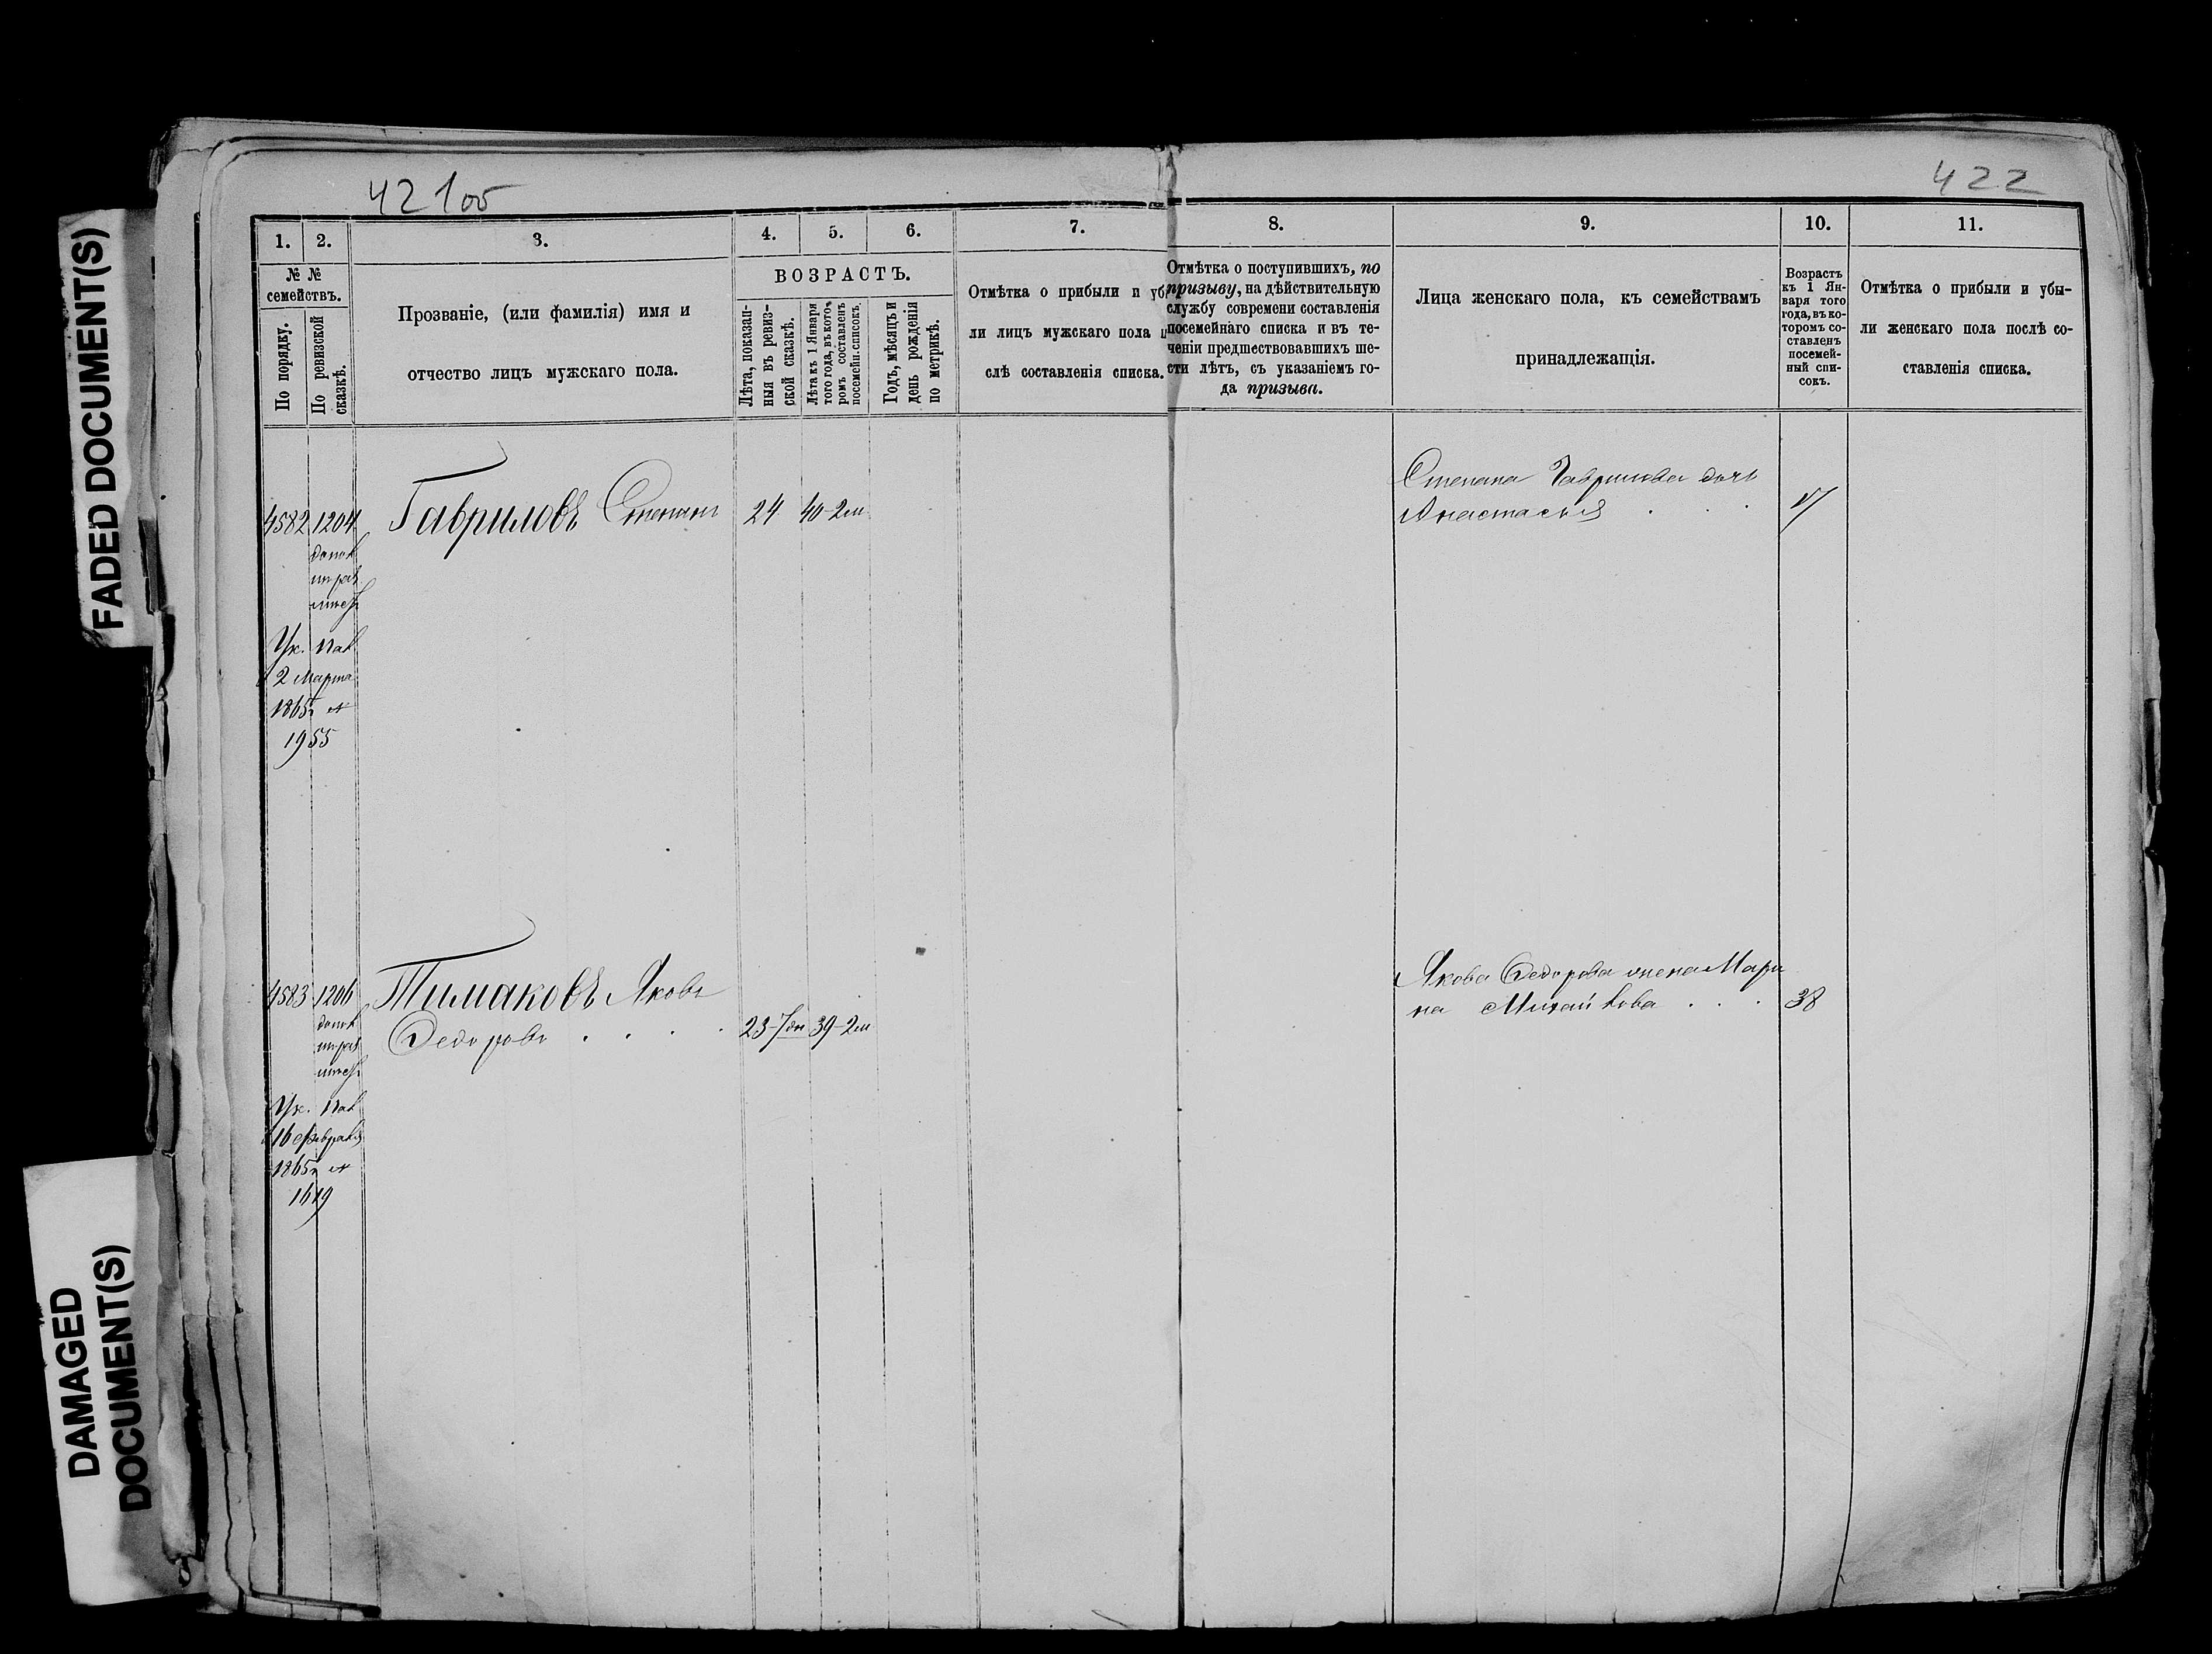 421об
422
FADED DOCUMENT(S)
DAMAGED
DOCUMENT(S)
1. 2. 3. 4. 5. 6. 7. 8. 9. 10. 11.
№ №
семействъ.
По порядку.
По ревизской
сказкѣ.
Прозваніе, (или фамилія) имя и
отчество лицъ мужскаго пола.
ВОЗРАСТЪ.
Лѣта, показан-
ныя въ ревиз-
ской сказкѣ.
Лѣта къ 1 Января
того года, въ кото-
ромъ составленъ
посемейн. списокъ.
Годъ, мѣсяцъ и
день рожденія
по метрикѣ.
Отмѣтка о прибыли и уб
ли лицъ мужскаго пола
слѣ составленія списка.
Отмѣтка о поступившихъ, по
призыву, на дѣйствительную
службу современи составленія
посемейнаго списка и въ те-
ченіи предшествовавшихъ ше-
сти лѣтъ, съ указаніемъ го-
да призыва.
Лица женскаго пола, къ семействамъ
принадлежащія.
Возрастъ
къ 1 Ян-
варя того
года, въ ко-
торомъ со-
ставленъ
посемей-
ный спи-
сокъ.
Отмѣтка о прибыли и убы-
ли женскаго пола послѣ со-
ставленія списка.
4582 1204 Гавриловъ Степанъ 24 40-2м
Степана Гаврилова дочь
Анастасья . . . 17
Ук. Пал
2 Марта
1865г №
1955
4583 1206 Тимаковъ Яковъ
Ѳедоровъ . . . . 23-7дн 39-2м
Якова Ѳедорова жена Мари
на Михайлова . . . 38
Ук. Пал
16 Февраля
1865г №
1619